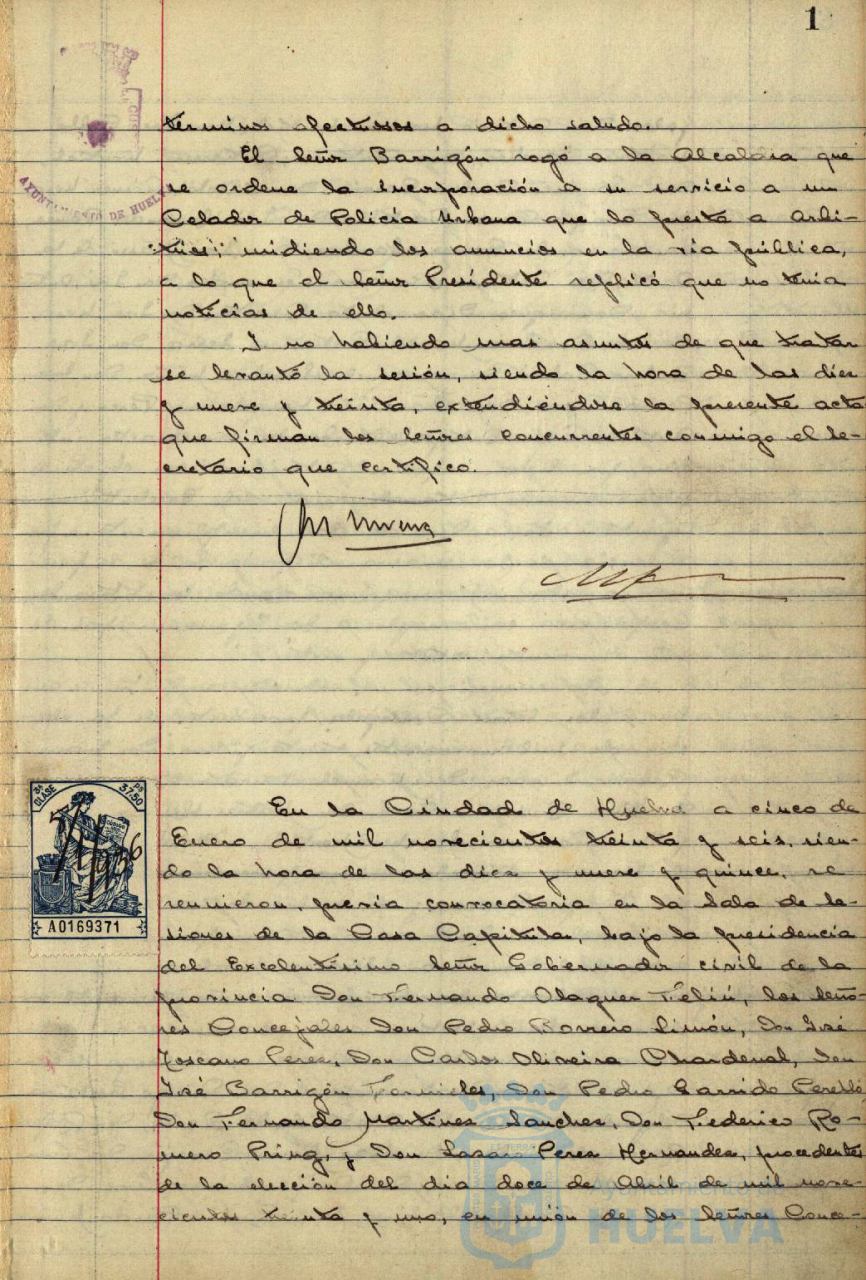 1
AYUNTAMIENTO DE HUELVA
términos afectuosos a dicho saludo.
El Señor Barrigón rogó a la Alcaldía que
se ordene la incorporación a su servicio a un
Celador de Policía Urbana que lo presta a Arbi-
trios, midiendo los anuncios en la vía pública,
a lo que el Señor Presidente replicó que no tenia
noticias de ello.
Y no habiendo mas asuntos de que tratar
se levantó la sesión, siendo la hora de las diez
y nueve y treinta, extendiéndose la presente acta
que firman los Señores concurrentes conmigo el Se-
cretario que certifico.
3ª CLASE
37'50 ps
1936
A0169371
En la Ciudad de Huelva a cinco de
Enero de mil novecientos treinta y seis, sien-
do la hora de las diez y nueve y quince, se
reunieron, previa convocatoria en la Sala de Se-
siones de la Casa Capitular, bajo la presidencia
del Excelentísimo Señor Gobernador civil de la
provincia Don Fernando Olaguer Feliú, los Seño-
res Concejales Don Pedro Borrero Limón, Don José
Toscano Perez, Don Carlos Oliveira Chardenal, Don
José Barrigón Fornieles, Don Pedro Garrido Perelló,
Don Fernando Martínez Sanchez, Don Federico Ro-
mero Pring, y Don Lazaro Perez Hernandez, procedentes
de la elección del dia doce de Abril de mil nove-
cientos treinta y uno, en unión de los Señores Conce-
HUELVA